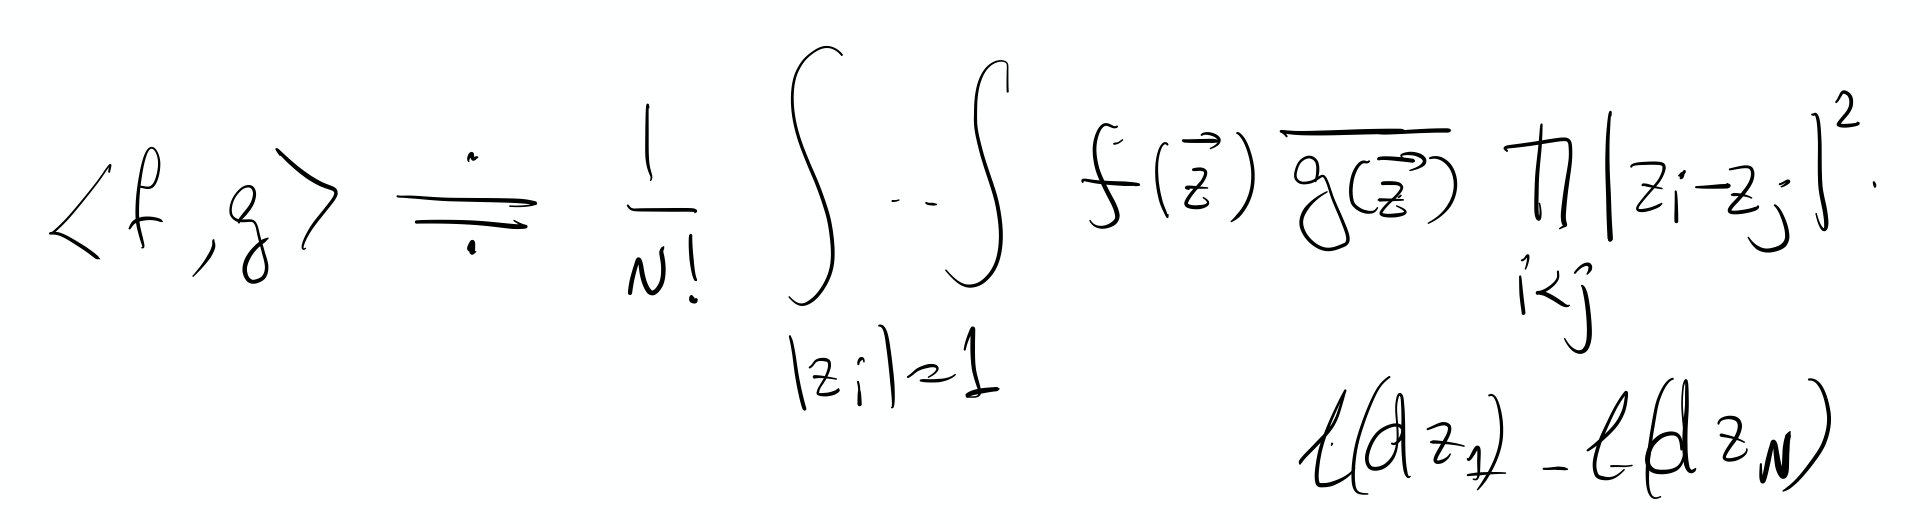 ⟨f, g⟩ ≑ 1/N! ∫ ‥ ∫_{|z_i|=1} f(z⃗) \overline{g(z⃗)} ∏_{i<j} |z_i − z_j|² ·
ℓ(dz_1) … ℓ(dz_N)